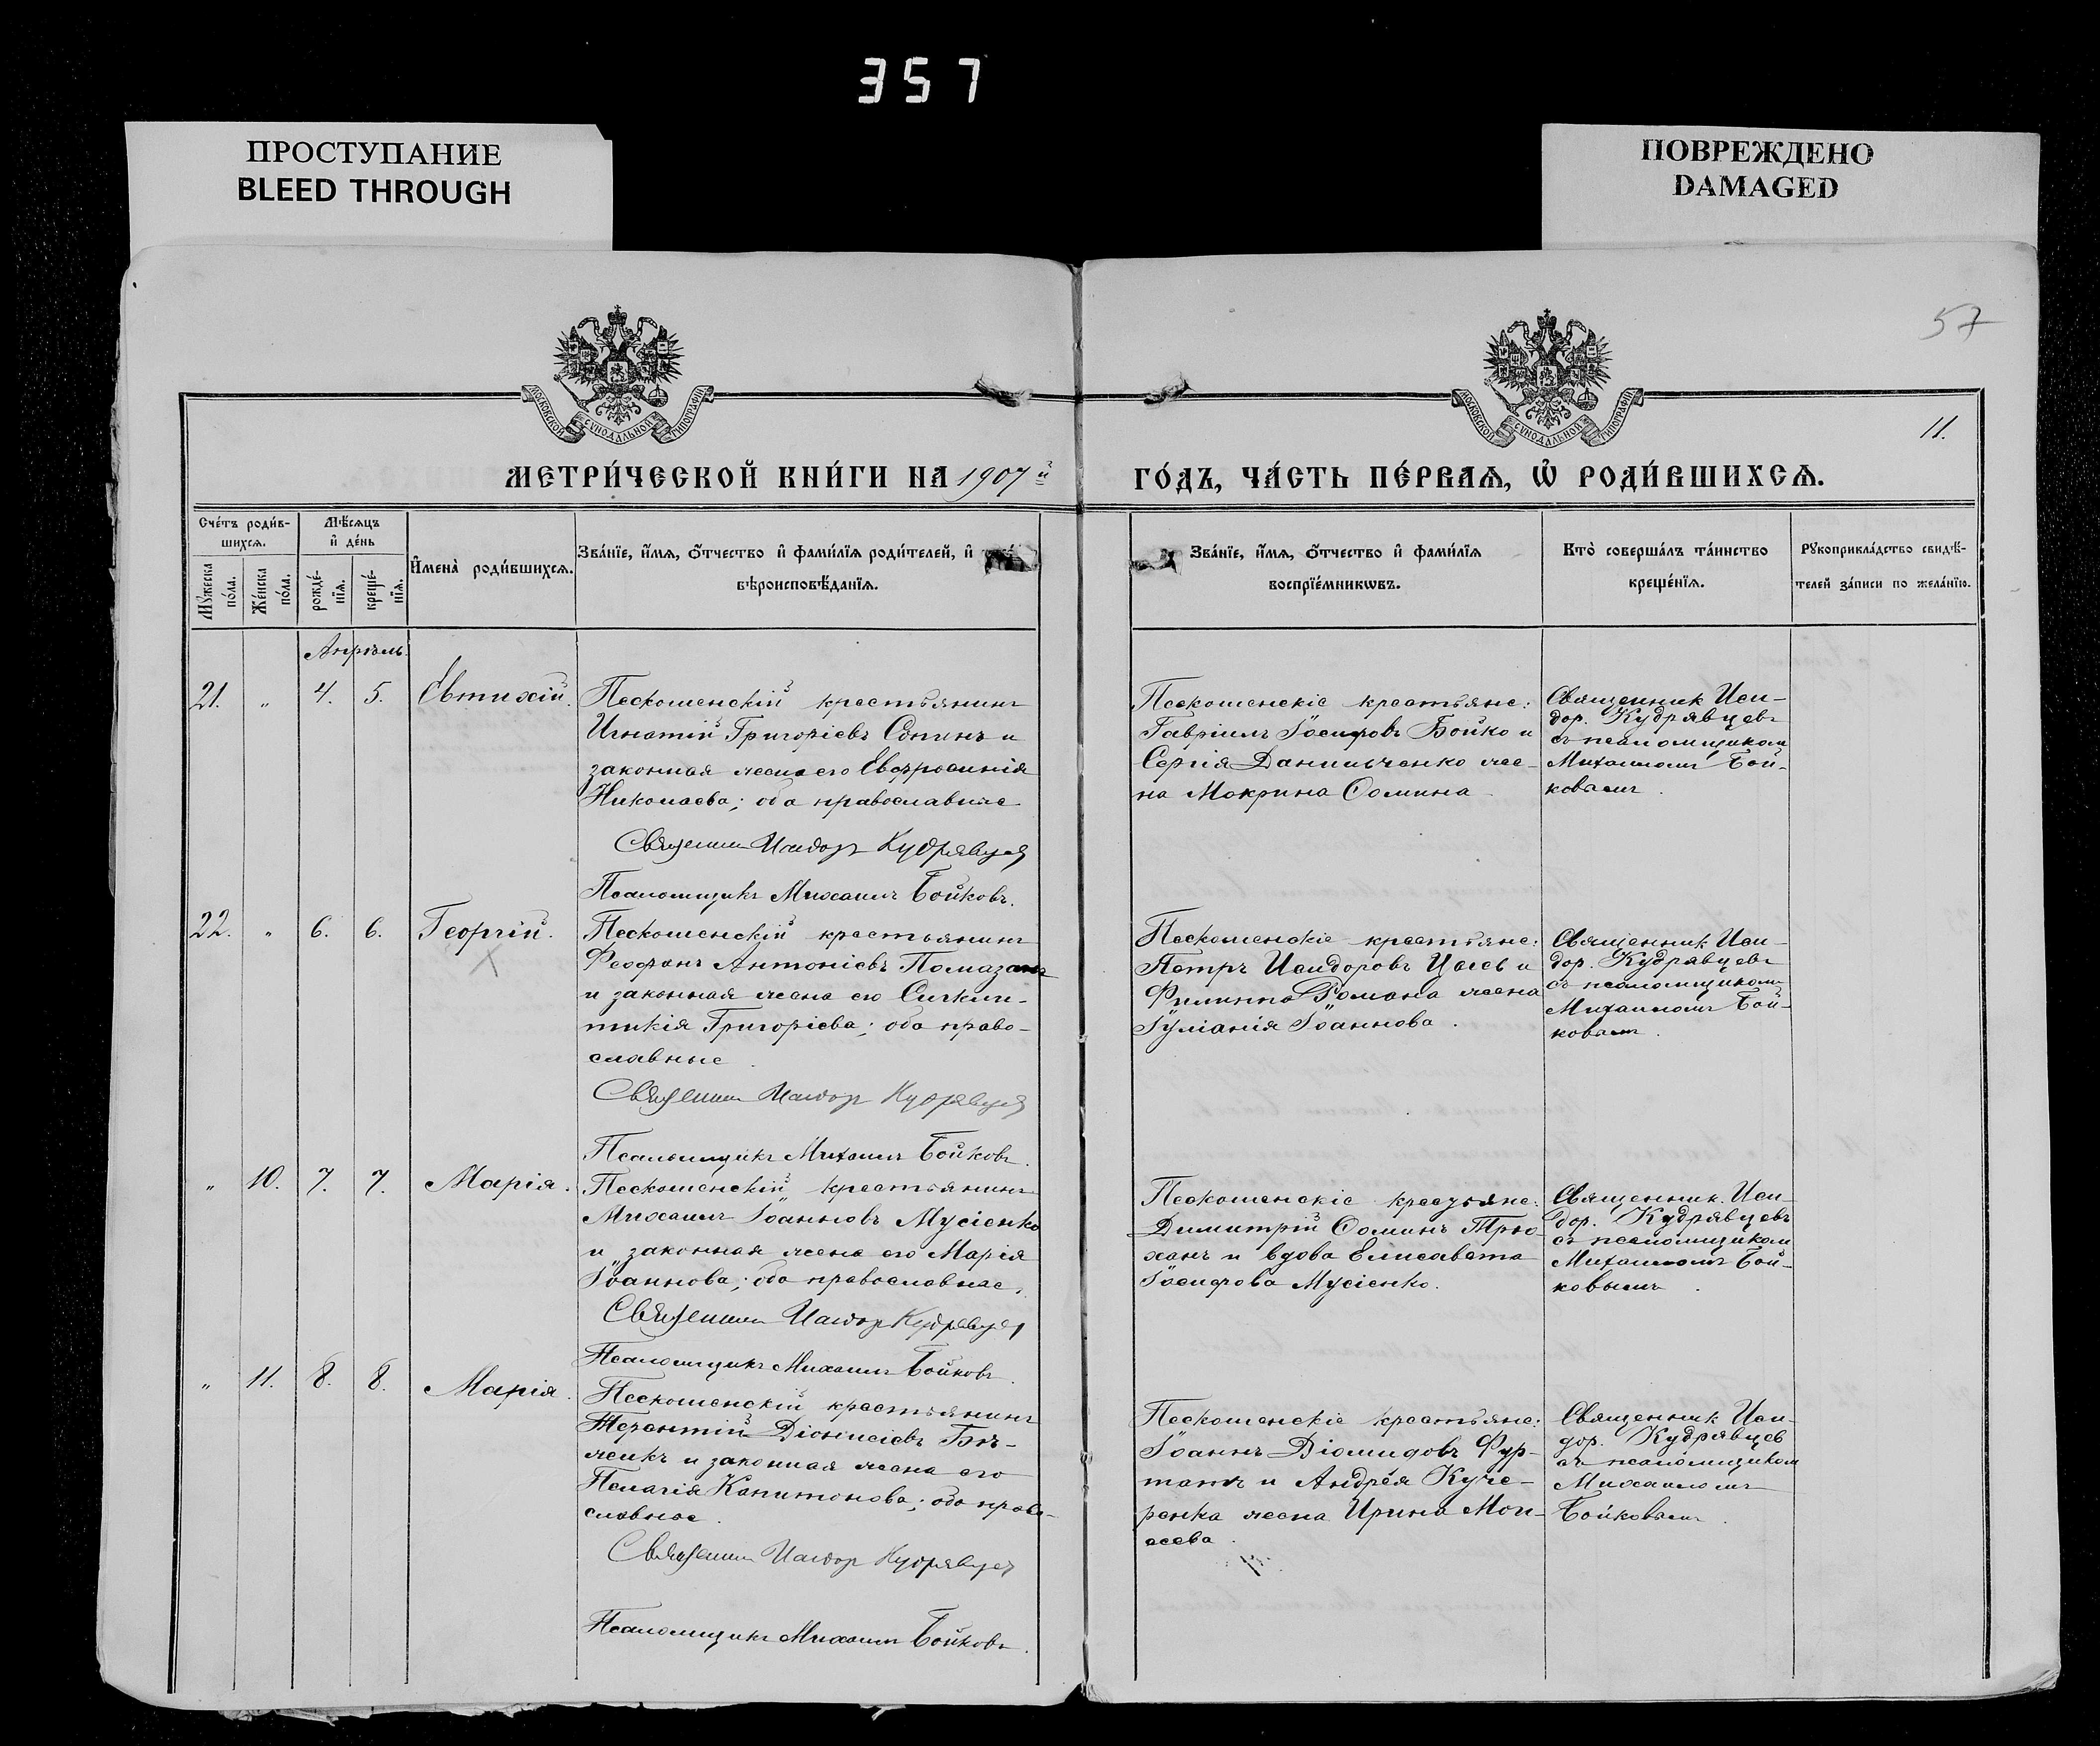 357
ПРОСТУПАНИЕ
BLEED THROUGH
ПОВРЕЖДЕНО
DAMAGED
57
МОСКОВСКОЙ СУНОДАЛЬНОЙ ТИПОГРАФІИ
МОСКОВСКОЙ СУНОДАЛЬНОЙ ТИПОГРАФІИ
11.
МЕТРИ́ЧЕСКОЙ КНИ́ГИ НА 1907й
ГО́ДЪ, ЧА́СТЬ ПЕ́РВАѦ, Ѽ РОДИ́ВШИХСѦ.
Сче́тъ роди́в-
шихсѧ.
Мꙋ́жеска по́ла.
Же́нска по́ла.
Мѣ́сѧцъ
и҆ де́нь
рожде́-
нїѧ.
креще́-
нїѧ.
И҆мена̀ роди́вшихсѧ.
Зва́нїе, и҆́мѧ, ѻ҆́тчество и҆ фами́лїѧ роди́телей, и҆
вѣроисповѣ́данїѧ.
Зва́нїе, и҆́мѧ, ѻ҆́тчество и҆ фами́лїѧ
воспрїе́мникѡвъ.
Кто̀ соверша́лъ та́инство
креще́нїѧ.
Рꙋкоприкла́дство свидѣ́-
телей за́писи по жела́нїю.
Апрѣль.
21. " 4. 5. Евтихій.
Пескошенскій крестьянинъ
Игнатій Григоріевъ и
законная жена его Евфросинія
Николаева; оба православные
Священник Исидор Кудрявцев
Псаломщикъ Михаилъ Бойковъ.
Пескошенскіе крестьяне:
Гавріилъ Іосифовъ Бойко и
Сергія Данильченко же-
на Макрина Ѳомина
Священник Иси-
дор. Кудрявцевъ
съ псаломщиком
Михаиломъ Бой-
ковымъ.
22. " 6. 6. Георгій.
Х
Пескошенскій крестьянинъ
Феофанъ Антоніевъ Помазанъ
и законная жена его Сигкли-
тикія Григоріева; оба право-
славные.
Священник Исидор Кудрявцев
Псаломщикъ Михаилъ Бойковъ.
Пескошенскіе крестьяне:
Петръ Исидоровъ и
Филиппа Романа жена
Іуліанія Іоаннова.
Священник Иси-
дор. Кудрявцевъ
съ псаломщикомъ
Михаиломъ Бой-
ковым.
" 10. 7. 7. Марія.
Пескошенскій крестьянинъ
Михаилъ Іоанновъ Мусіенко
и законная жена его Марія
Іоаннова; оба православные.
Священник Исидор Кудрявцев
Псаломщикъ Михаилъ Бойковъ.
Пескошенскіе крестьяне:
Димитрій Ѳоминъ Трю-
ханъ и вдова Елисавета
Іосифова Мусіенко.
Священник Иси-
дор. Кудрявцевъ
съ псаломщиком
Михаиломъ Бой-
ковымъ.
" 11. 8. 8. Марія.
Пескошенскій крестьянинъ
Терентій Діонисіевъ
и законная жена его
Пелагія Капитонова; оба право-
славные.
Священник Исидор Кудрявцев
Псаломщикъ Михаилъ Бойковъ.
Пескошенскіе крестьяне:
Іоаннъ Діомидовъ Фур-
татъ и Андрея Куче-
ренка жена Ирина Мои-
сеева.
Священник Иси-
дор. Кудрявцев
съ псаломщиком
Михаиломъ
Бойковымъ.